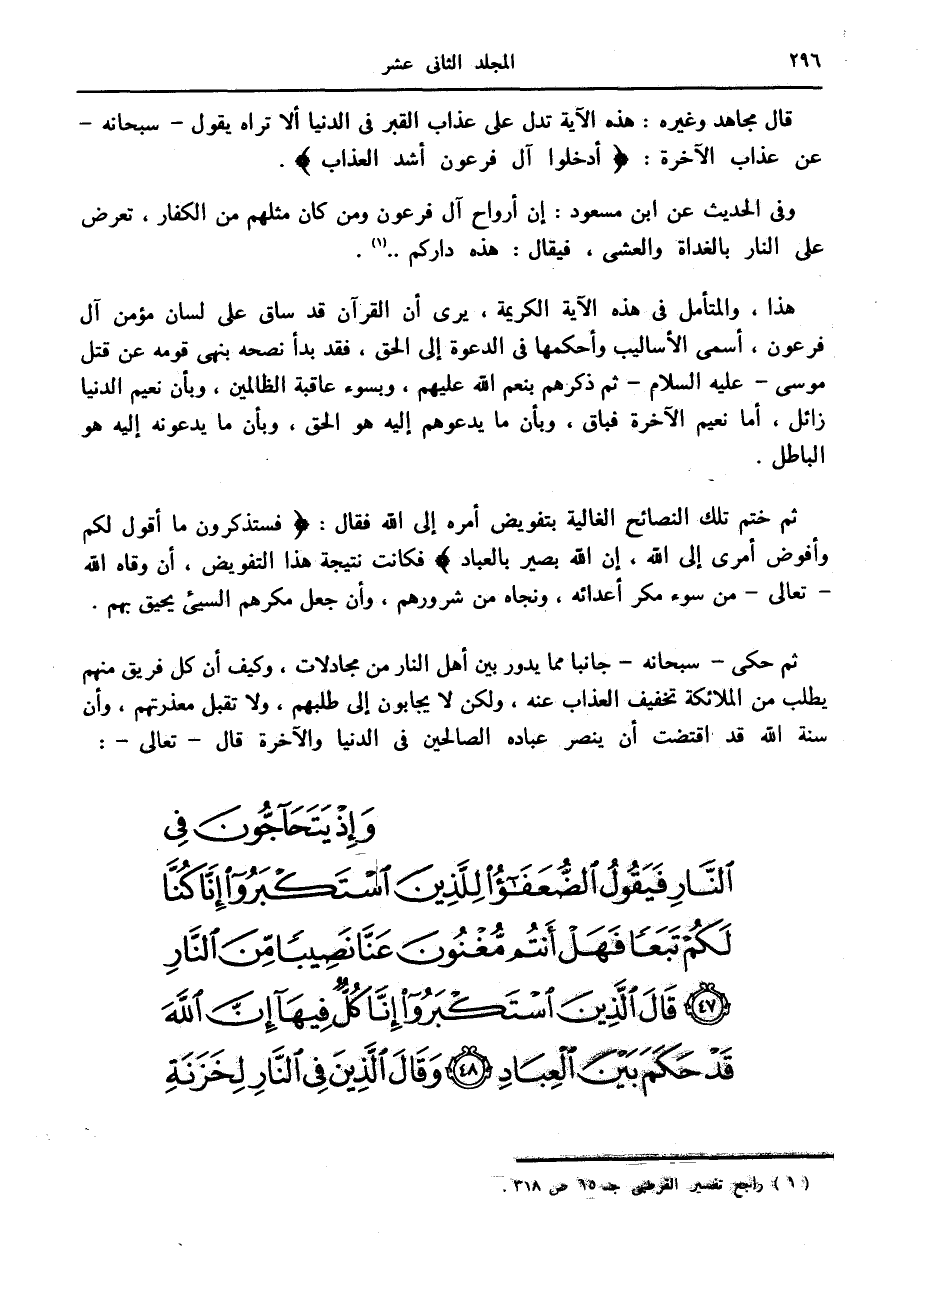 ٢٩٦
المجلد الثانى عشر
قال مجاهد وغيره : هذه الآية تدل على عذاب القبر فى الدنيا ألا تراه يقول – سبحانه –
عن عذاب الآخرة : ﴿ أدخلوا آل فرعون أشد العذاب ﴾ .
وفى الحديث عن ابن مسعود : إن أرواح آل فرعون ومن كان مثلهم من الكفار ، تعرض
على النار بالغداة والعشى ، فيقال : هذه داركم ..(١) .
هذا ، والمتأمل فى هذه الآية الكريمة ، يرى أن القرآن قد ساق على لسان مؤمن آل
فرعون ، أسمى الأساليب وأحكمها فى الدعوة إلى الحق ، فقد بدأ نصحه بنهى قومه عن قتل
موسى – عليه السلام – ثم ذكرهم بنعم الله عليهم ، وبسوء عاقبة الظالمين ، وبأن نعيم الدنيا
زائل ، أما نعيم الآخرة فباق ، وبأن ما يدعوهم إليه هو الحق ، وبأن ما يدعونه إليه هو
الباطل .
ثم ختم تلك النصائح الغالية بتفويض أمره إلى الله فقال : ﴿ فستذكرون ما أقول لكم
وأفوض أمرى إلى الله ، إن الله بصير بالعباد ﴾ فكانت نتيجة هذا التفويض ، أن وقاه الله
– تعالى – من سوء مكر أعدائه ، ونجاه من شرورهم ، وأن جعل مكرهم السيئ يحيق بهم .
ثم حكى – سبحانه – جانبا مما يدور بين أهل النار من مجادلات ، وكيف أن كل فريق منهم
يطلب من الملائكة تخفيف العذاب عنه ، ولكن لا يجابون إلى طلبهم ، ولا تقبل معذرتهم ، وأن
سنة الله قد اقتضت أن ينصر عباده الصالحين فى الدنيا والآخرة قال – تعالى – :
وَإِذْ يَتَحَآجُّونَ فِى
ٱلنَّارِ فَيَقُولُ ٱلضُّعَفَٰٓؤُا۟ لِلَّذِينَ ٱسْتَكْبَرُوٓا۟ إِنَّا كُنَّا
لَكُمْ تَبَعًا فَهَلْ أَنتُم مُّغْنُونَ عَنَّا نَصِيبًا مِّنَ ٱلنَّارِ
﴿٤٧﴾ قَالَ ٱلَّذِينَ ٱسْتَكْبَرُوٓا۟ إِنَّا كُلٌّ فِيهَآ إِنَّ ٱللَّهَ
قَدْ حَكَمَ بَيْنَ ٱلْعِبَادِ ﴿٤٨﴾ وَقَالَ ٱلَّذِينَ فِى ٱلنَّارِ لِخَزَنَةِ
( ١ ) راجع تفسير القرطبى جـ ١٥ ص ٣١٨ .